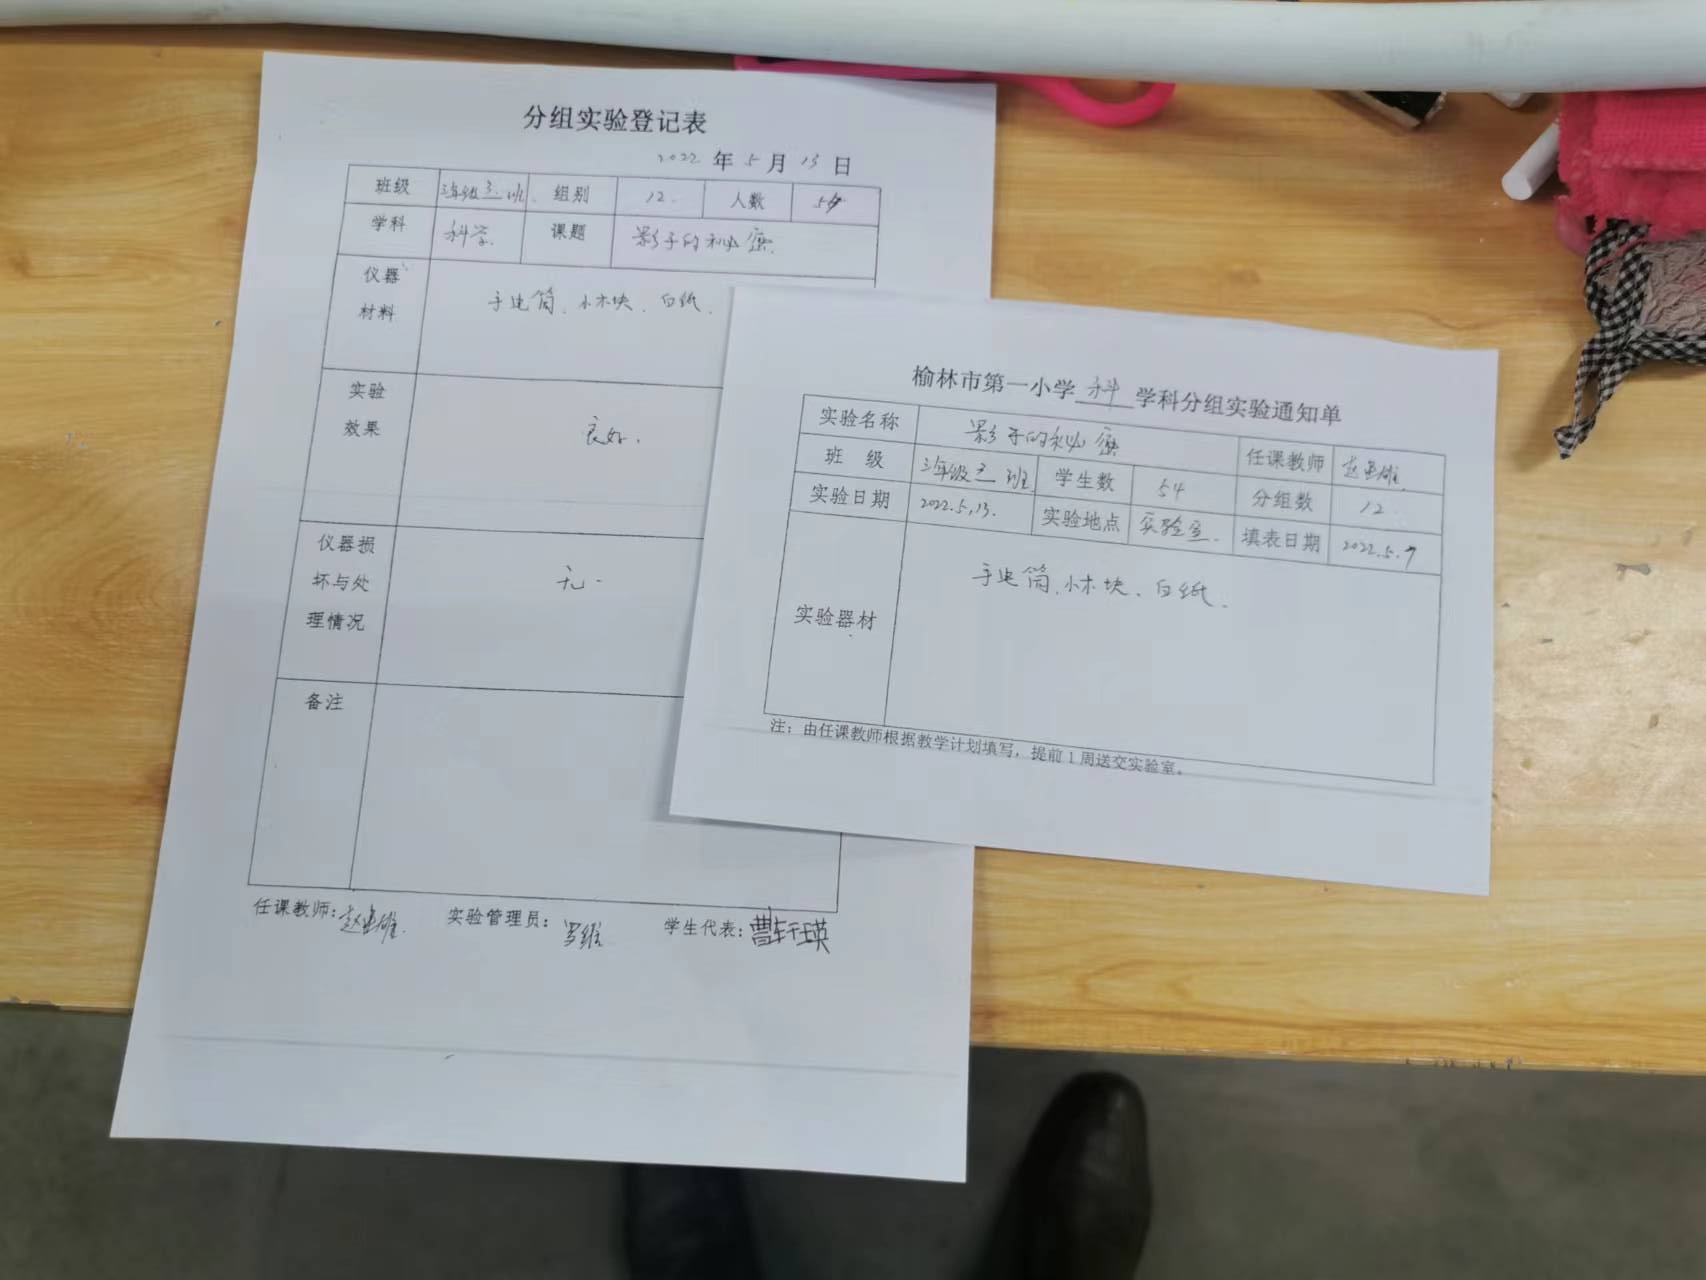 分组实验登记表
2022 年 5 月 13 日
班级 三年级三班 组别 12. 人数 54
学科 科学. 课题 影子的秘密.
仪器材料 手电筒、小木块、白纸.
实验效果 良好.
仪器损坏与处理情况 无.
备注
任课教师: 实验管理员: 罗维 学生代表: 曹轩瑛
榆林市第一小学 科 学科分组实验通知单
实验名称 影子的秘密 任课教师
班 级 三年级三班 学生数 54 分组数 12
实验日期 2022.5.13. 实验地点 实验室. 填表日期 2022.5.7
实验器材 手电筒、小木块、白纸.
注：由任课教师根据教学计划填写，提前 1 周送交实验室。